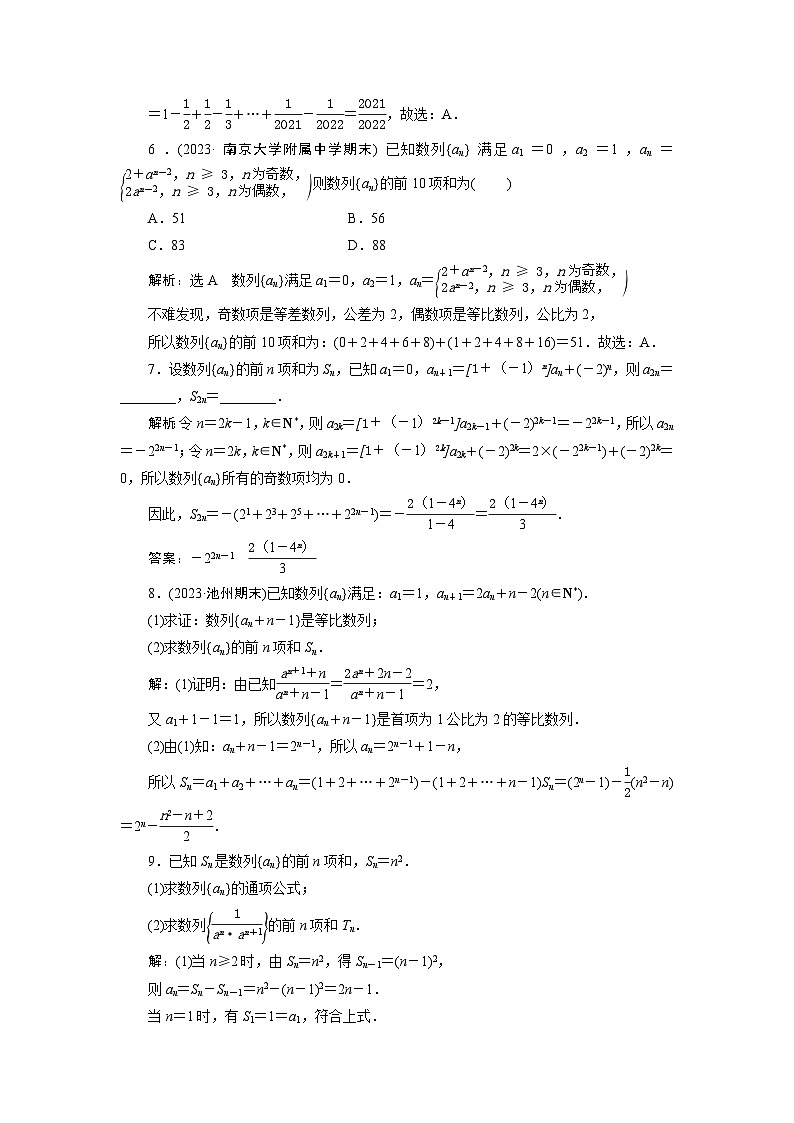 =1-1/2+1/2-1/3+…+1/2021-1/2022=2021/2022,故选:A.
6 .(2023· 南京大学附属中学期末) 已知数列{aₙ} 满足 a₁ =0 ,a₂ =1 ,aₙ =
{2+aₙ₋₂,n ≥ 3,n为奇数, 2aₙ₋₂,n ≥ 3,n为偶数, 则数列{aₙ}的前 10 项和为( )
A.51 B.56
C.83 D.88
解析:选 A 数列{aₙ}满足 a₁=0,a₂=1,aₙ={2+aₙ₋₂,n ≥ 3,n为奇数, 2aₙ₋₂,n ≥ 3,n为偶数,
不难发现,奇数项是等差数列,公差为 2,偶数项是等比数列,公比为 2,
所以数列{aₙ}的前 10 项和为:(0+2+4+6+8)+(1+2+4+8+16)=51.故选:A.
7.设数列{aₙ}的前 n 项和为 Sₙ,已知 a₁=0,aₙ₊₁=[1+(-1)ⁿ]aₙ+(-2)ⁿ,则 a₂ₙ=
________,S₂ₙ=________.
解析:令 n=2k-1,k∈N*,则 a₂ₖ=[1+(-1)²ᵏ⁻¹]a₂ₖ₋₁+(-2)²ᵏ⁻¹=-2²ᵏ⁻¹,所以 a₂ₙ
=-2²ⁿ⁻¹;令 n=2k,k∈N*,则 a₂ₖ₊₁=[1+(-1)²ᵏ]a₂ₖ+(-2)²ᵏ=2×(-2²ᵏ⁻¹)+(-2)²ᵏ=
0,所以数列{aₙ}所有的奇数项均为 0.
因此,S₂ₙ=-(2¹+2³+2⁵+…+2²ⁿ⁻¹)=-2(1-4ⁿ)/(1-4)=2(1-4ⁿ)/3.
答案:-2²ⁿ⁻¹ 2(1-4ⁿ)/3
8.(2023·池州期末)已知数列{aₙ}满足:a₁=1,aₙ₊₁=2aₙ+n-2(n∈N*).
(1)求证:数列{aₙ+n-1}是等比数列;
(2)求数列{aₙ}的前 n 项和 Sₙ.
解:(1)证明:由已知(aₙ₊₁+n)/(aₙ+n-1)=(2aₙ+2n-2)/(aₙ+n-1)=2,
又 a₁+1-1=1,所以数列{aₙ+n-1}是首项为 1 公比为 2 的等比数列.
(2)由(1)知:aₙ+n-1=2ⁿ⁻¹,所以 aₙ=2ⁿ⁻¹+1-n,
所以 Sₙ=a₁+a₂+…+aₙ=(1+2+…+2ⁿ⁻¹)-(1+2+…+n-1)Sₙ=(2ⁿ-1)-1/2(n²-n)
=2ⁿ-(n²-n+2)/2.
9.已知 Sₙ是数列{aₙ}的前 n 项和,Sₙ=n².
(1)求数列{aₙ}的通项公式;
(2)求数列{1/(aₙ·aₙ₊₁)}的前 n 项和 Tₙ.
解:(1)当 n≥2 时,由 Sₙ=n²,得 Sₙ₋₁=(n-1)²,
则 aₙ=Sₙ-Sₙ₋₁=n²-(n-1)²=2n-1.
当 n=1 时,有 S₁=1=a₁,符合上式.